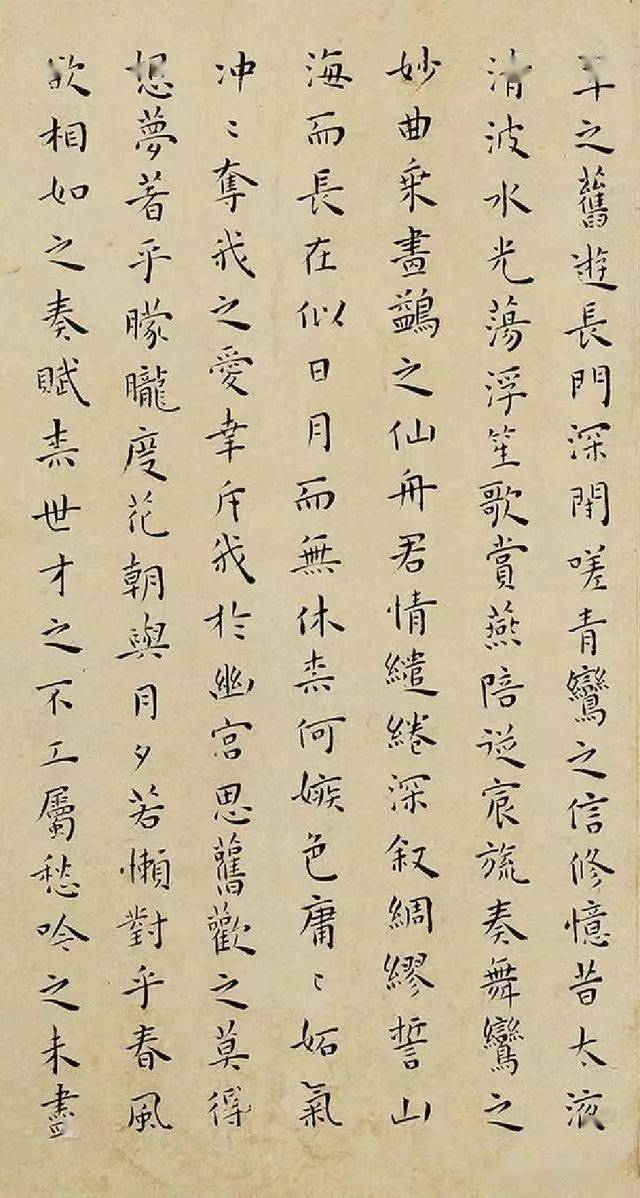 翠之舊遊長門深閉嗟青鸞之信修憶昔太液
清波水光蕩浮笙歌賞燕陪從宸旒奏舞鸞之
妙曲乗畫鷁之仙舟君情繾綣深叙綢繆誓山
海而長在似日月而無休柰何嫉色庸〻妬氣
冲〻奪我之愛幸斥我於幽宮思舊歡之莫得
想夢著乎朦朧度花朝與月夕若懶對乎春風
欲相如之奏賦柰世才之不工屬愁吟之未盡